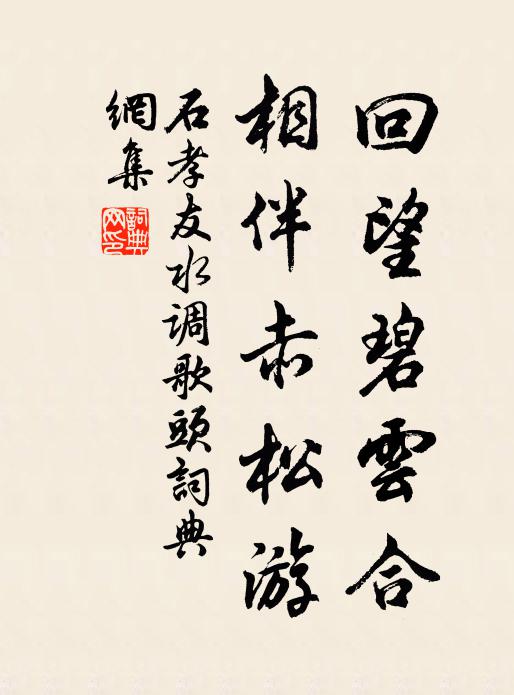 回望碧雲合
相伴赤松游
石孝友水调歌頭詞典
網集
詞典
网印